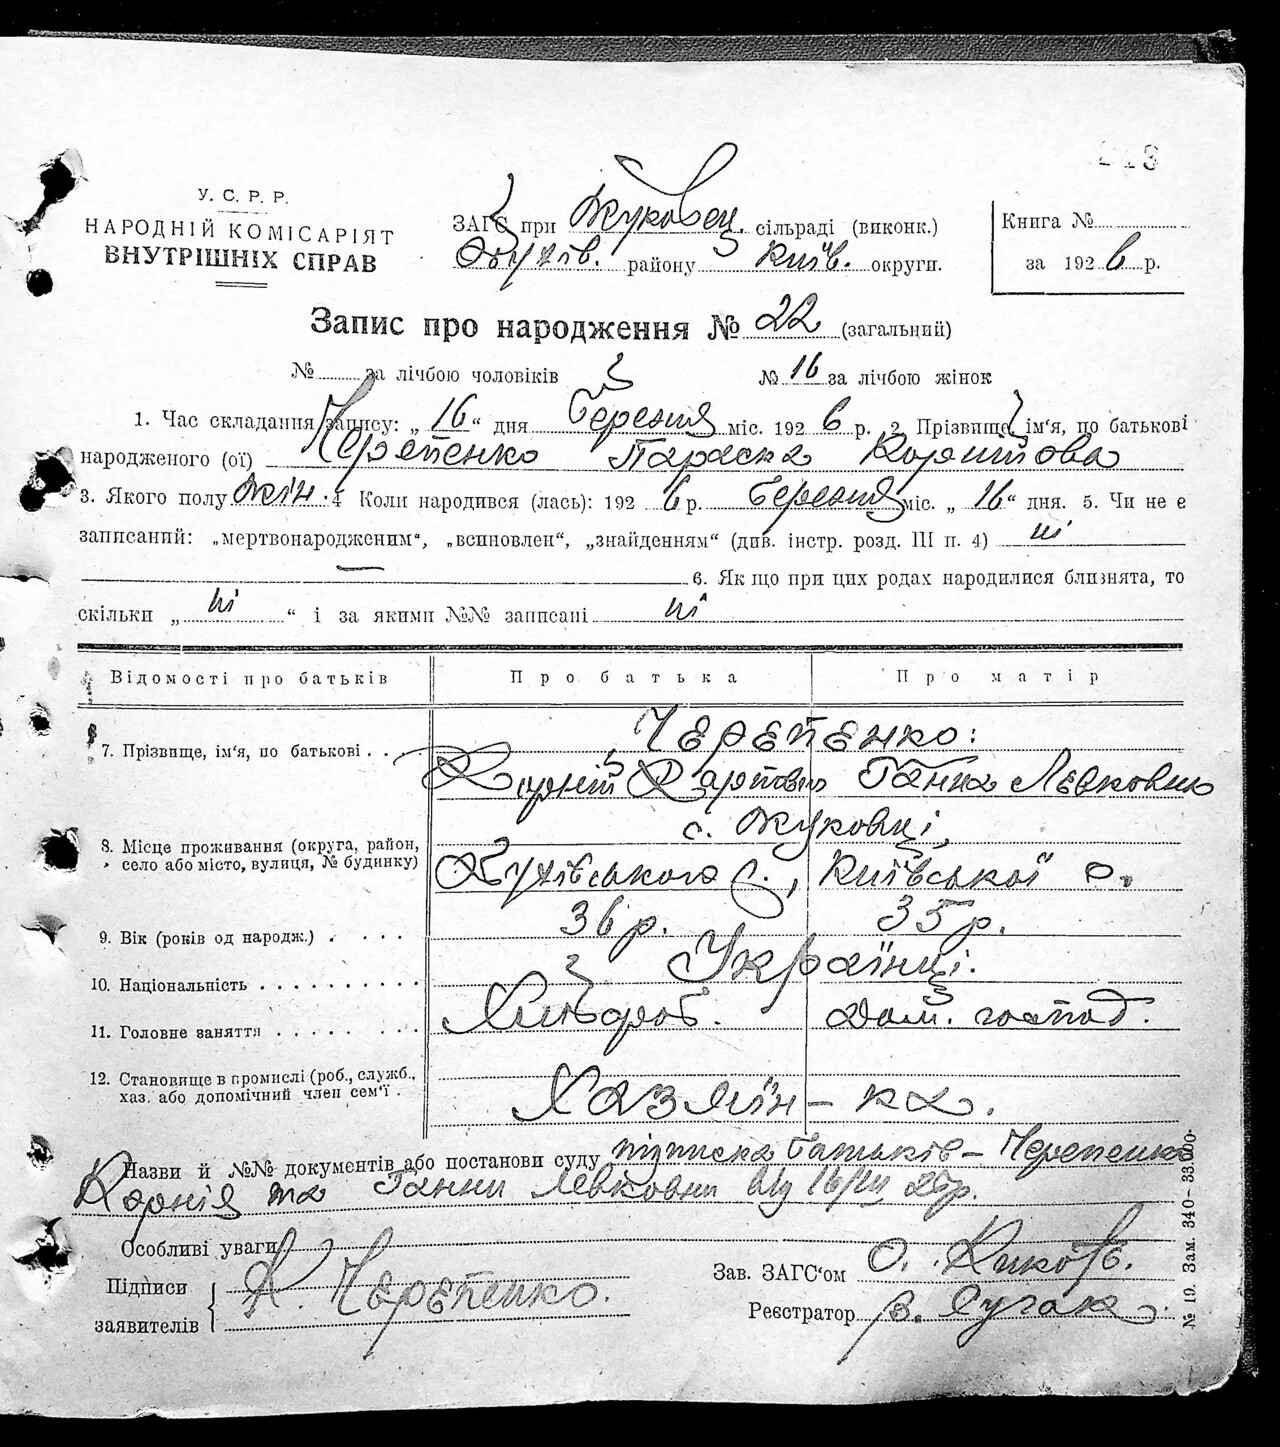 213
У. С. Р. Р.
НАРОДНІЙ КОМІСАРІЯТ
ВНУТРІШНІХ СПРАВ
ЗАГС при Жуковец. сільраді (виконк.)
Обухів. району Київ. округи.
Книга №
за 1926 р.
Запис про народження № 22 (загальний)
№ за лічбою чоловіків № 16 за лічбою жінок
1. Час складання запису: „16“ дня Березня міс. 1926 р. 2. Прізвище, ім'я, по батькові
народженого (ої) Черепенко Параска Корніїова
3. Якого полу жін. 4 Коли народився (лась): 1926 р. Березня міс. „16“ дня. 5. Чи не є
записаний: „мертвонародженим“, „всиновлен“, „знайденням“ (див. інстр. розд. III п. 4) ні
— 6. Як що при цих родах народилися близнята, то
скільки „ ні “ і за якими №№ записані ні
Відомості про батьків Про батька Про матір
7. Прізвище, ім'я, по батькові . . . Черепенко:
Корній Карпович Ганна Левковна
с. Жуковці,
8. Місце проживання (округа, район,
село або місто, вулиця, № будинку) Обухівського р., Київської о.
9. Вік (років од народж.) . . . . . 36 р. 35 р.
10. Національність . . . . . . . . . . Українці.
11. Головне заняття . . . . . . . . . Хлібороб. Дом. господ.
12. Становище в промислі (роб., служб.,
хаз. або допомічний член сем'ї . Хазяїн – ка.
Назви й №№ документів або постанови суду підписка батьків – Черепенка
Корнія та Ганни Левковни від 16/III 26 р.
Особливі уваги
Підписи
заявителів К. Черепенко.
Зав. ЗАГС'ом О.
Реєстратор
№ 19. Зам. 340–33.000-